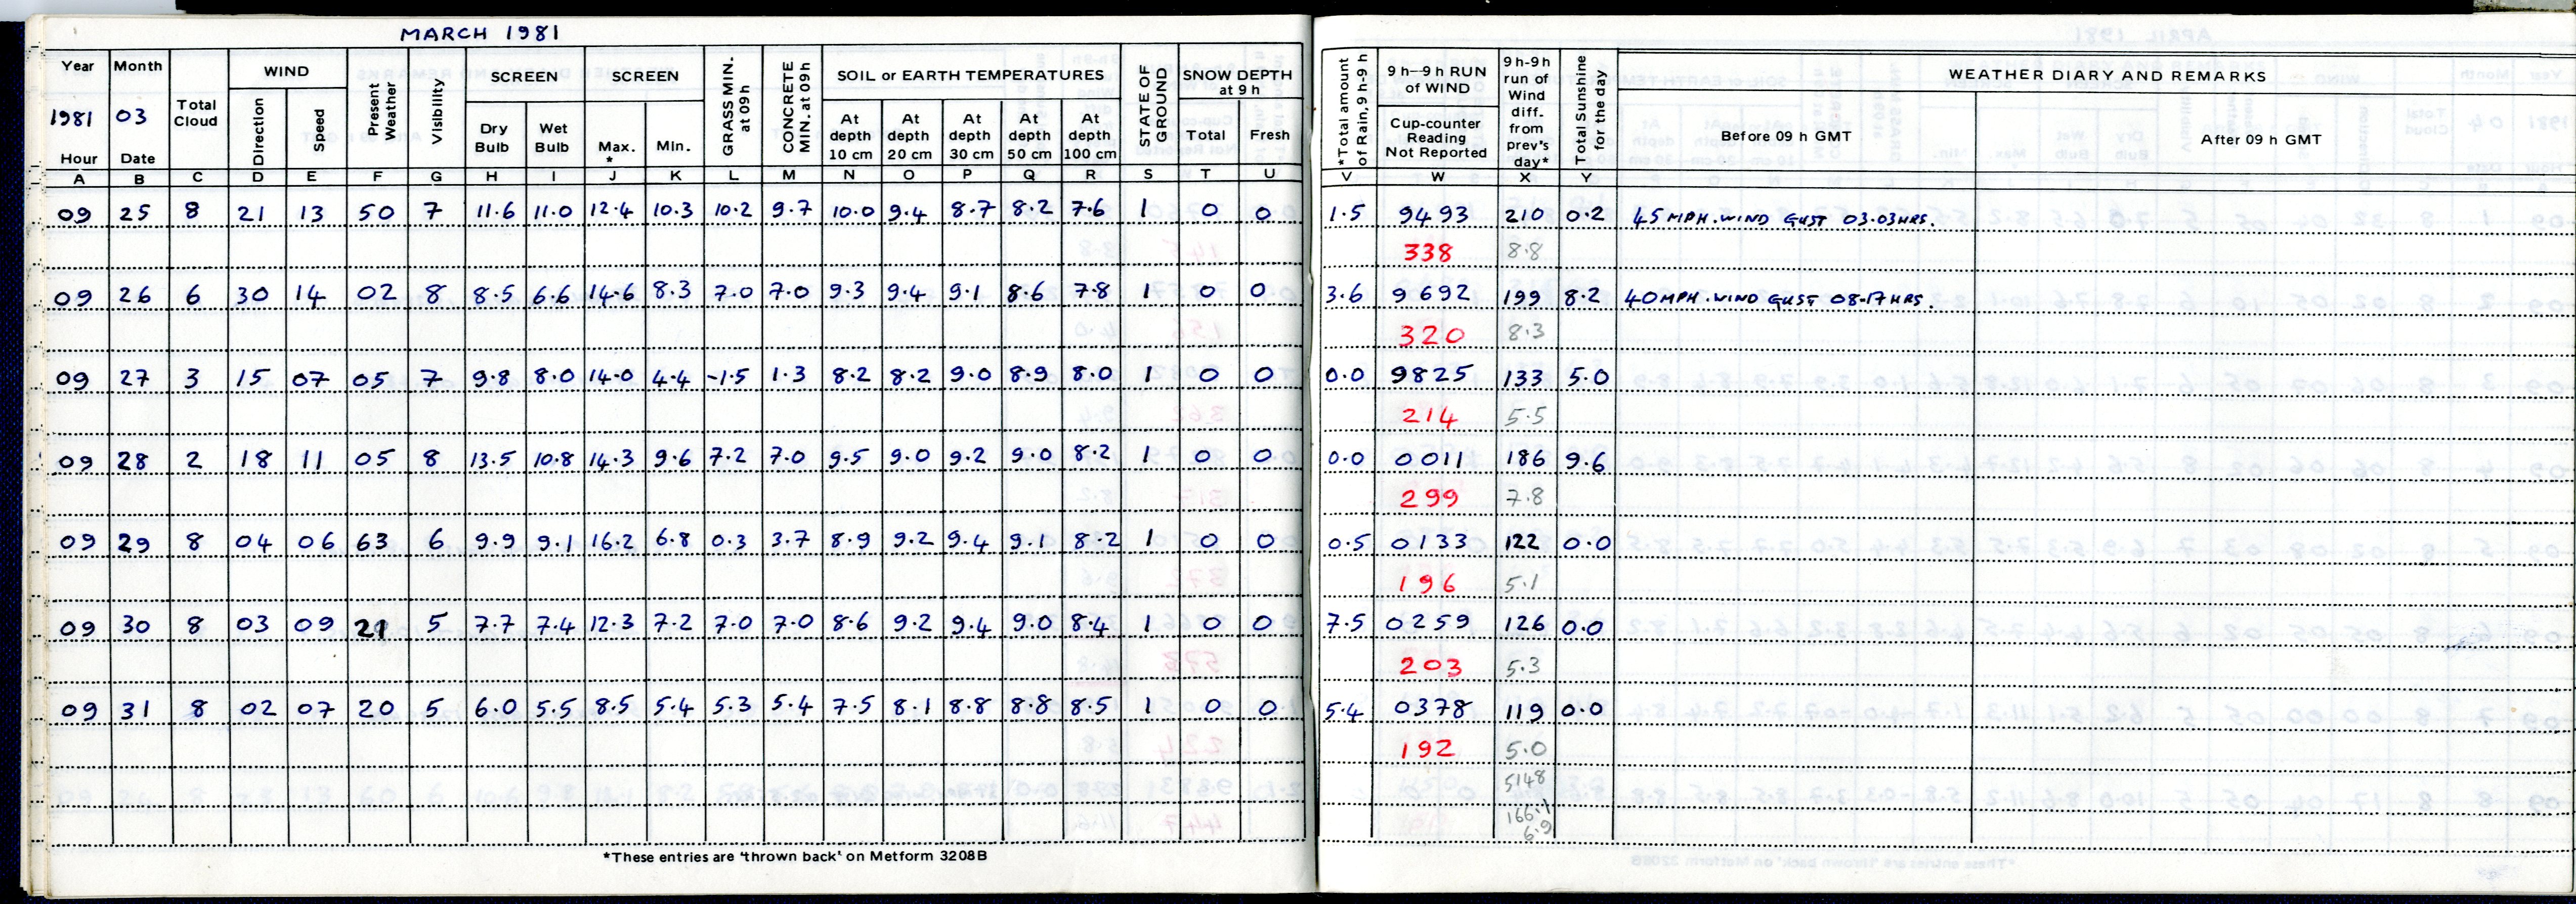 MARCH 1981
Year Month WIND SCREEN SCREEN GRASS MIN. at 09h CONCRETE MIN. at 09h SOIL or EARTH TEMPERATURES STATE OF GROUND SNOW DEPTH at 9 h *Total amount of Rain, 9h-9h 9h—9h RUN of WIND 9h-9h run of Wind diff. from prev's day* Total Sunshine for the day WEATHER DIARY AND REMARKS
1981 03 Total Cloud Direction Speed Present Weather Visibility Dry Bulb Wet Bulb Max. * Min. At depth 10 cm At depth 20 cm At depth 30 cm At depth 50 cm At depth 100 cm Total Fresh Cup-counter Reading Not Reported Before 09 h GMT After 09 h GMT
Hour Date
A B C D E F G H I J K L M N O P Q R S T U V W X Y
09 25 8 21 13 50 7 11.6 11.0 12.4 10.3 10.2 9.7 10.0 9.4 8.7 8.2 7.6 1 0 0 1.5 9493 210 0.2 45 MPH. WIND GUST 03.03 HRS.
338 8.8
09 26 6 30 14 02 8 8.5 6.6 14.6 8.3 7.0 7.0 9.3 9.4 9.1 8.6 7.8 1 0 0 3.6 9692 199 8.2 40 MPH. WIND GUST 08.17 HRS.
320 8.3
09 27 3 15 07 05 7 9.8 8.0 14.0 4.4 -1.5 1.3 8.2 8.2 9.0 8.9 8.0 1 0 0 0.0 9825 133 5.0
214 5.5
09 28 2 18 11 05 8 13.5 10.8 14.3 9.6 7.2 7.0 9.5 9.0 9.2 9.0 8.2 1 0 0 0.0 0011 186 9.6
299 7.8
09 29 8 04 06 63 6 9.9 9.1 16.2 6.8 0.3 3.7 8.9 9.2 9.4 9.1 8.2 1 0 0 0.5 0133 122 0.0
196 5.1
09 30 8 03 09 21 5 7.7 7.4 12.3 7.2 7.0 7.0 8.6 9.2 9.4 9.0 8.4 1 0 0 7.5 0259 126 0.0
203 5.3
09 31 8 02 07 20 5 6.0 5.5 8.5 5.4 5.3 5.4 7.5 8.1 8.8 8.8 8.5 1 0 0 5.4 0378 119 0.0
192 5.0
5148
166.1
6.9
*These entries are 'thrown back' on Metform 3208B